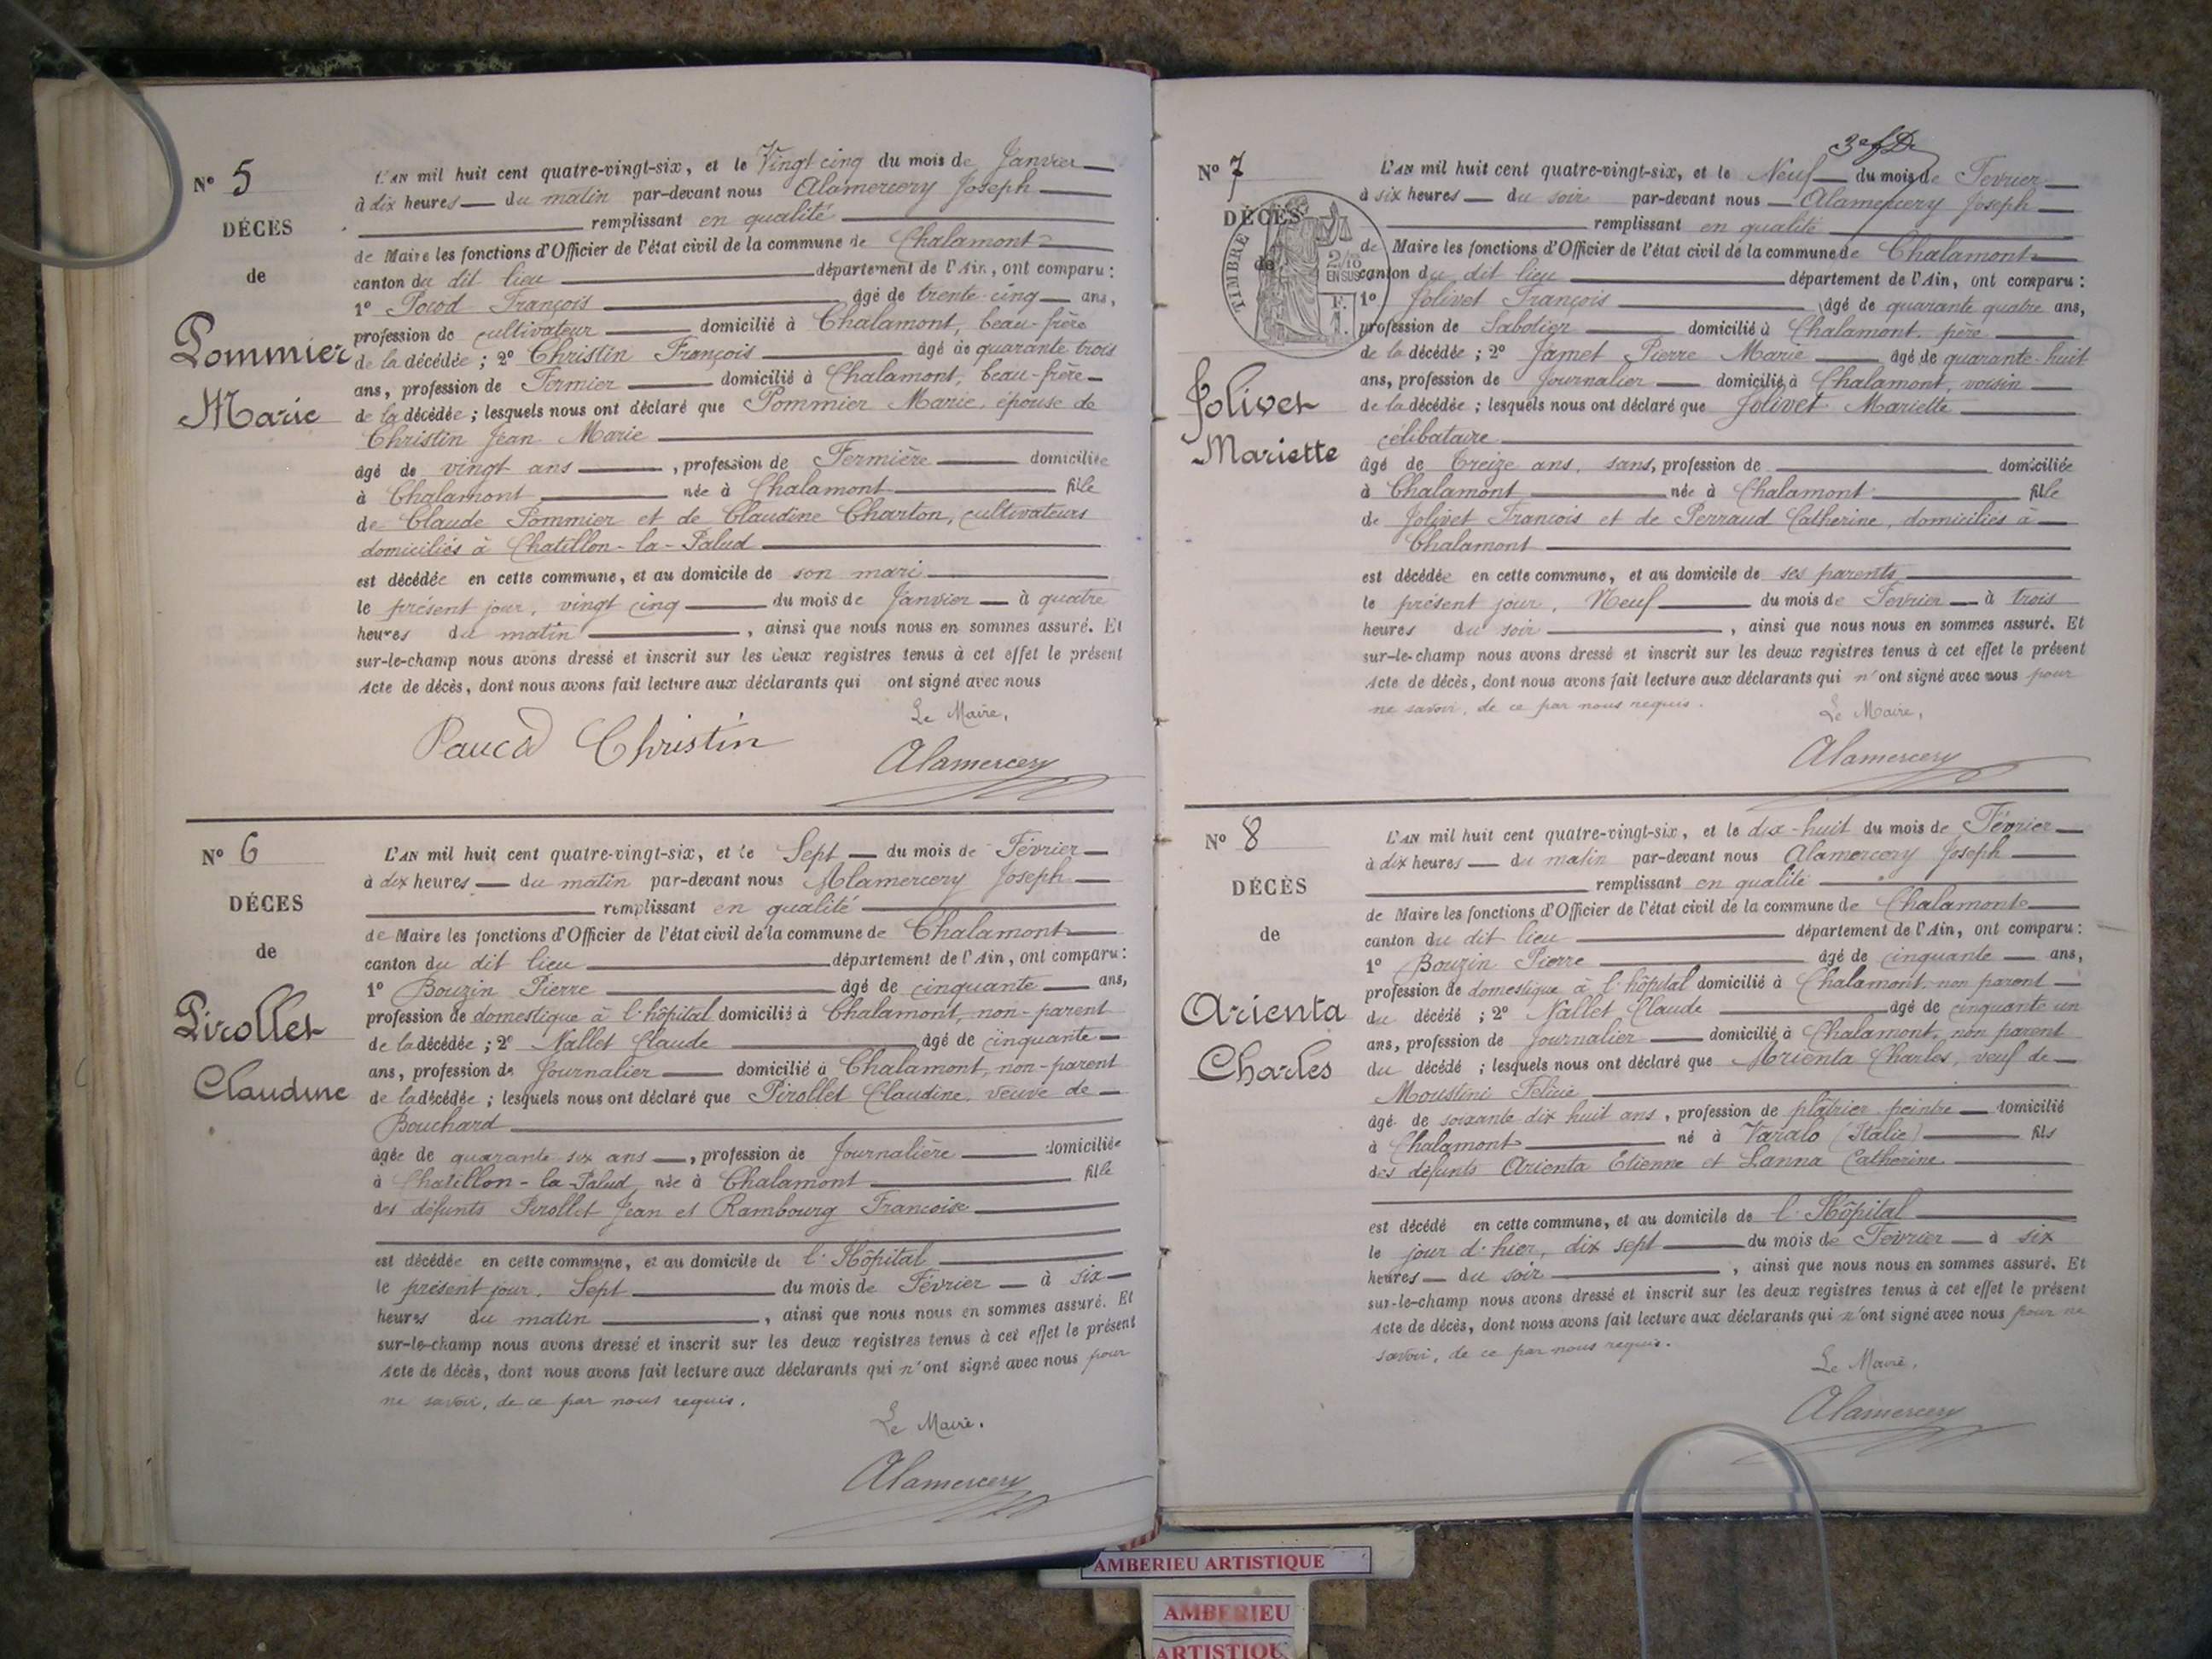 N° 5
DÉCES
de
Pommier
Marie
L'AN mil huit cent quatre-vingt-six, et le Vingt cinq du mois de Janvier
à dix heures du matin par-devant nous Alamercery Joseph
remplissant en qualité
de Maire les fonctions d'Officier de l'état civil de la commune de Chalamont
canton du dit lieu département de l'Ain, ont comparu :
1° Pocod François âgé de trente-cinq ans,
profession de cultivateur domicilié à Chalamont, beau-frère
de la décédée ; 2° Christin François âgé de quarante trois
ans, profession de Fermier domicilié à Chalamont, beau-frère
de la décédée ; lesquels nous ont déclaré que Pommier Marie, épouse de
Christin Jean Marie
âgé de vingt ans, profession de Fermière domiciliée
à Chalamont née à Chalamont fille
de Claude Pommier et de Claudine Charton, cultivateurs
domiciliés à Chatillon-la-Palud
est décédée en cette commune, et au domicile de son mari
le présent jour, vingt cinq du mois de Janvier à quatre
heures du matin, ainsi que nous nous en sommes assuré. Et
sur-le-champ nous avons dressé et inscrit sur les deux registres tenus à cet effet le présent
Acte de décès, dont nous avons fait lecture aux déclarants qui ont signé avec nous
Le Maire,
Paucd Christin
Alamercery
N° 6
DÉCES
de
Pirollet
Claudine
L'AN mil huit cent quatre-vingt-six, et le Sept du mois de Février
à dix heures du matin par-devant nous Alamercery Joseph
remplissant en qualité
de Maire les fonctions d'Officier de l'état civil de la commune de Chalamont
canton du dit lieu département de l'Ain, ont comparu :
1° Bouzin Pierre âgé de cinquante ans,
profession de domestique à l'hôpital domicilié à Chalamont, non-parent
de la décédée ; 2° Nallet Claude âgé de cinquante
ans, profession de Journalier domicilié à Chalamont, non-parent
de la décédée ; lesquels nous ont déclaré que Pirollet Claudine, veuve de
Bouchard
âgée de quarante-six ans, profession de Journalière domiciliée
à Chatillon-la-Palud née à Chalamont fille
des défunts Pirollet Jean et Rambourg Francoise
est décédée en cette commune, et au domicile de l'Hôpital
le présent jour, Sept du mois de Février à six
heures du matin, ainsi que nous nous en sommes assuré. Et
sur-le-champ nous avons dressé et inscrit sur les deux registres tenus à cet effet le présent
Acte de décès, dont nous avons fait lecture aux déclarants qui n'ont signé avec nous pour
ne savoir, de ce par nous requis.
Le Maire.
Alamercery
N° 7
DÉCES
de
TIMBRE
2/10
EN SUS
Jolivet
Mariette
L'AN mil huit cent quatre-vingt-six, et le Neuf du mois de Fevrier
à six heures du soir par-devant nous Alamercery Joseph
remplissant en qualité
de Maire les fonctions d'Officier de l'état civil de la commune de Chalamont
canton du dit lieu département de l'Ain, ont comparu :
1° Jolivet François âgé de quarante quatre ans,
profession de Sabotier domicilié à Chalamont, père
de la décédée ; 2° Jamet Pierre Marie âgé de quarante-huit
ans, profession de Journalier domicilié à Chalamont, voisin
de la décédée ; lesquels nous ont déclaré que Jolivet Mariette
célibataire
âgé de treize ans, sans, profession de domiciliée
à Chalamont née à Chalamont fille
de Jolivet François et de Perraud Catherine, domiciliés à
Chalamont
est décédée en cette commune, et au domicile de ses parents
le présent jour, Neuf du mois de Fevrier à trois
heures du soir, ainsi que nous nous en sommes assuré. Et
sur-le-champ nous avons dressé et inscrit sur les deux registres tenus à cet effet le présent
Acte de décès, dont nous avons fait lecture aux déclarants qui n'ont signé avec nous pour
ne savoir, de ce par nous requis.
Le Maire,
Alamercery
N° 8
DÉCÈS
de
Arienta
Charles
L'AN mil huit cent quatre-vingt-six, et le dix-huit du mois de Février
à dix heures du matin par-devant nous Alamercery Joseph
remplissant en qualité
de Maire les fonctions d'Officier de l'état civil de la commune de Chalamont
canton du dit lieu département de l'Ain, ont comparu :
1° Bouzin Pierre âgé de cinquante ans,
profession de domestique à l'hôpital domicilié à Chalamont, non parent
du décédé ; 2° Nallet Claude âgé de cinquante un
ans, profession de Journalier domicilié à Chalamont, non parent
du décédé ; lesquels nous ont déclaré que Arienta Charles, veuf de
Moustini Felicie
âgé de soixante dix huit ans, profession de plâtrier peintre domicilié
à Chalamont né à Varalo (Italie) fils
des défunts Arienta Etienne et Lanna Catherine
est décédé en cette commune, et au domicile de l'Hôpital
le jour d'hier, dix sept du mois de Fevrier à six
heures du soir, ainsi que nous nous en sommes assuré. Et
sur-le-champ nous avons dressé et inscrit sur les deux registres tenus à cet effet le présent
Acte de décès, dont nous avons fait lecture aux déclarants qui n'ont signé avec nous pour ne
savoir, de ce par nous requis.
Le Maire,
Alamercery
AMBERIEU ARTISTIQUE
AMBERIEU
ARTISTIQUE